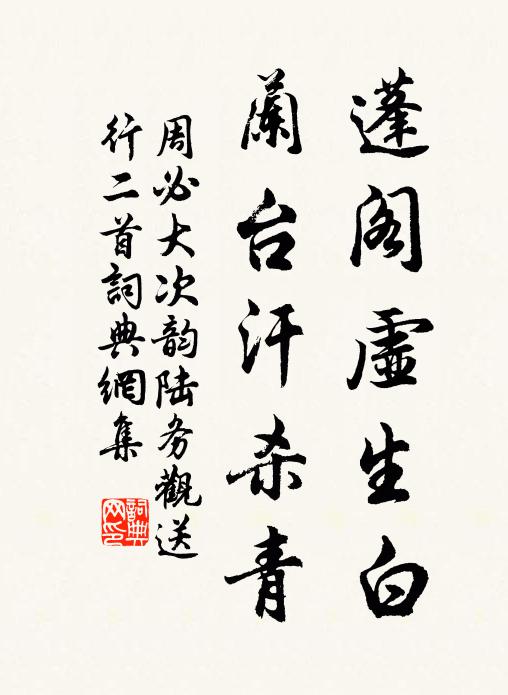 蓬阁虛生白
蘭台汗杀青
周必大次韵陆务觀送
行二首詞典網集
詞典网印